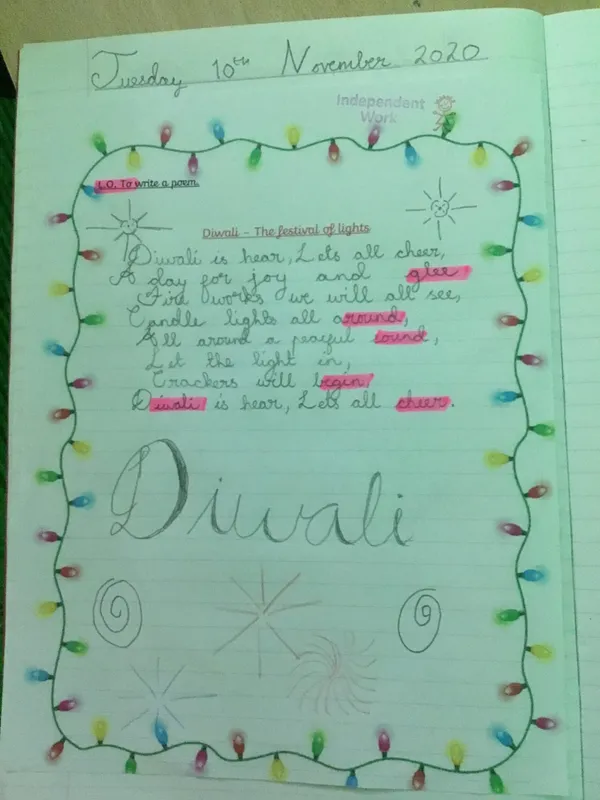 Tuesday 10th November 2020
Independent
Work
L.O. To write a poem.
Diwali – The festival of lights
Diwali is hear, Lets all cheer,
A day for joy and glee
Fire works we will all see,
Candle lights all around,
All around a peaful sound,
Let the light in,
Crackers will begin
Diwali is hear, Lets all cheer.
Diwali